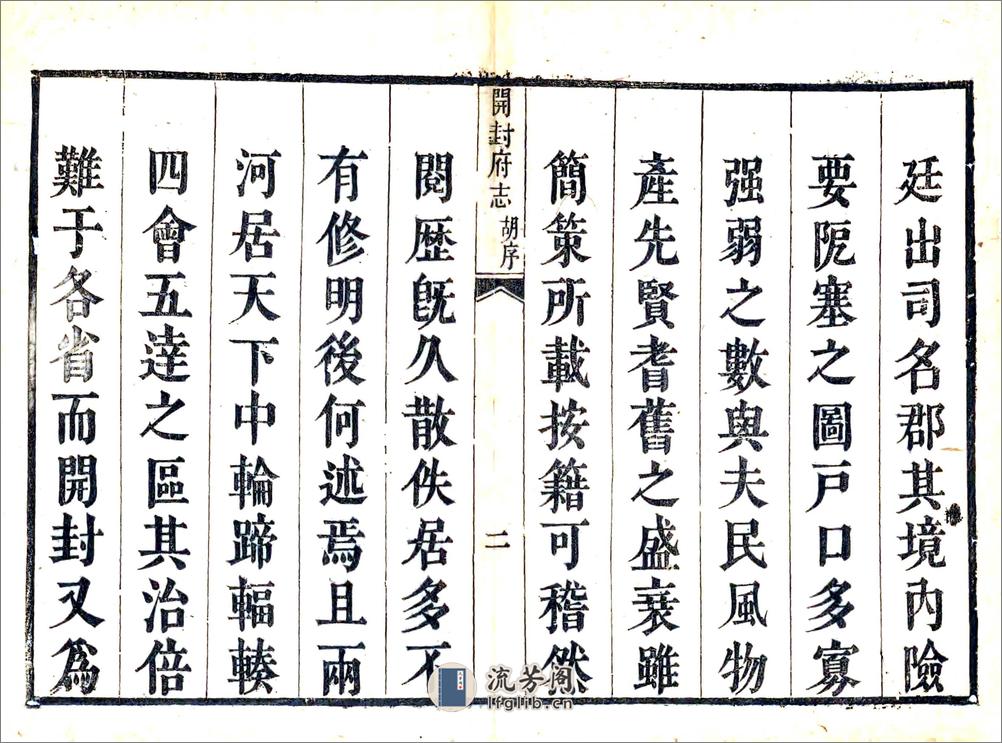 廷出司名郡其境內險
要阨塞之圖戸口多寡
强弱之數與夫民風物
產先賢耆舊之盛衰雖
簡策所載按籍可稽然
開封府志 胡序 二
閱歷旣久散佚居多不
有修明後何述焉且兩
河居天下中輪蹄輻輳
四會五達之區其治倍
難于各省而開封又爲
流芳阁
lfglib.cn